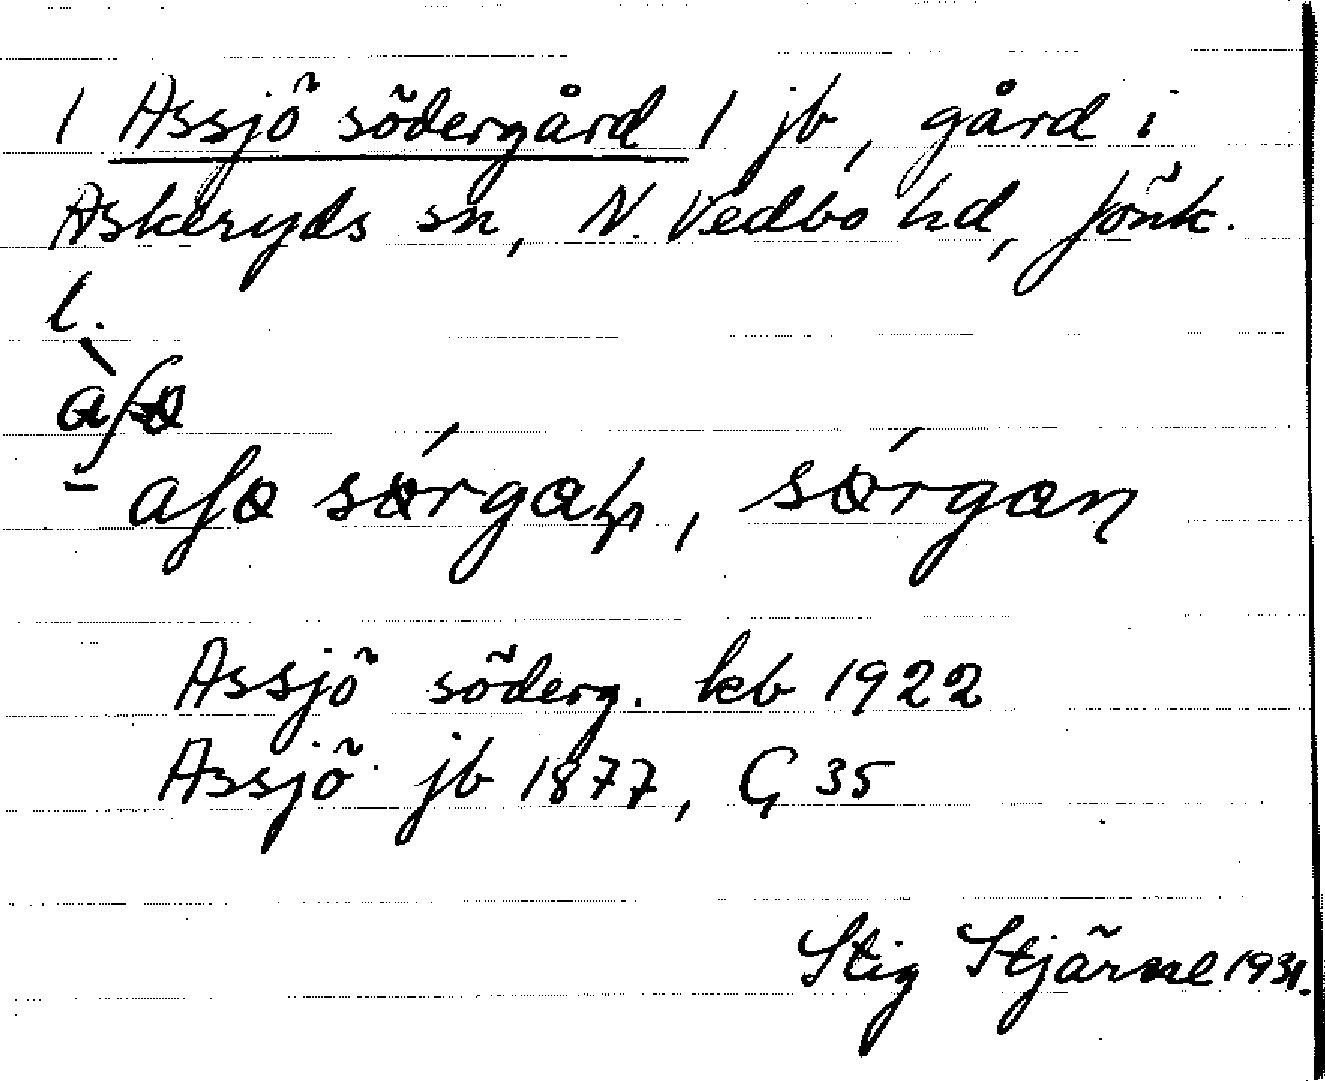 1 Assjö södergård 1 jb, gård i
Askeryds sn, N. Vedbo hd, Jönk.
l.
Assjö söderg. kb 1922
Assjö jb 1877, G 35
Stig Stjärne 1931.